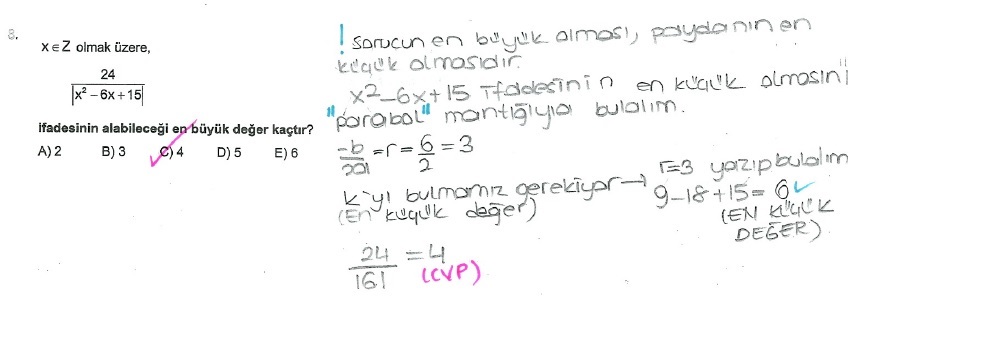 8.
x∈Z olmak üzere,
24
|x² – 6x + 15|
ifadesinin alabileceği en büyük değer kaçtır?
A) 2 B) 3 C) 4 D) 5 E) 6
! Sonucun en büyük olması, paydanın en
küçük olmasıdır.
x²-6x+15 ifadesinin en küçük olmasını
"parabol" mantığıyla bulalım.
-b/2a = r = 6/2 = 3
k'yı bulmamız gerekiyor → r=3 yazıp bulalım
(En küçük değer)
9-18+15= 6 ✓
(EN KÜÇÜK
DEĞER)
24/|6| = 4
(CVP)